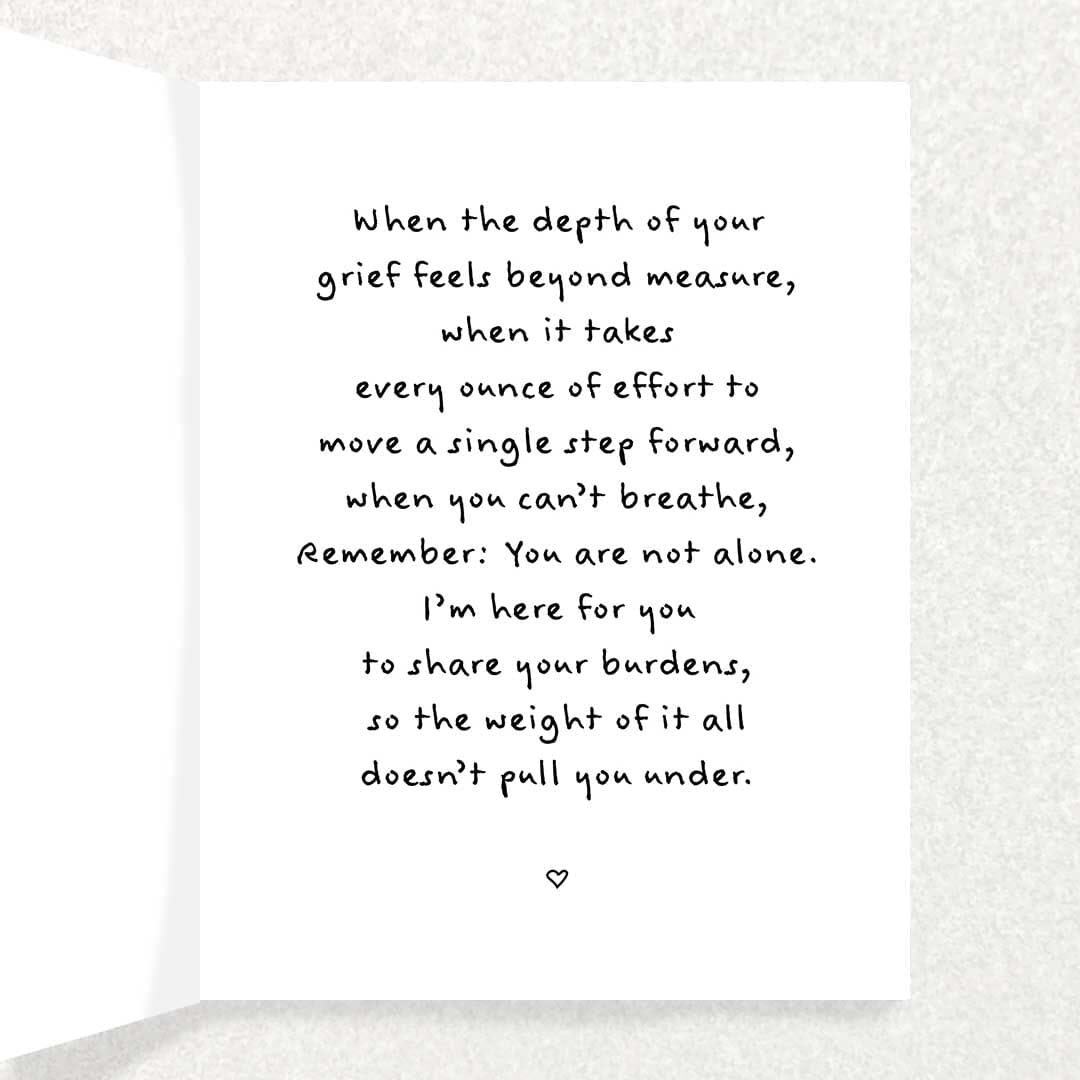 When the depth of your
grief feels beyond measure,
when it takes
every ounce of effort to
move a single step forward,
when you can't breathe,
Remember: You are not alone.
I'm here for you
to share your burdens,
so the weight of it all
doesn't pull you under.